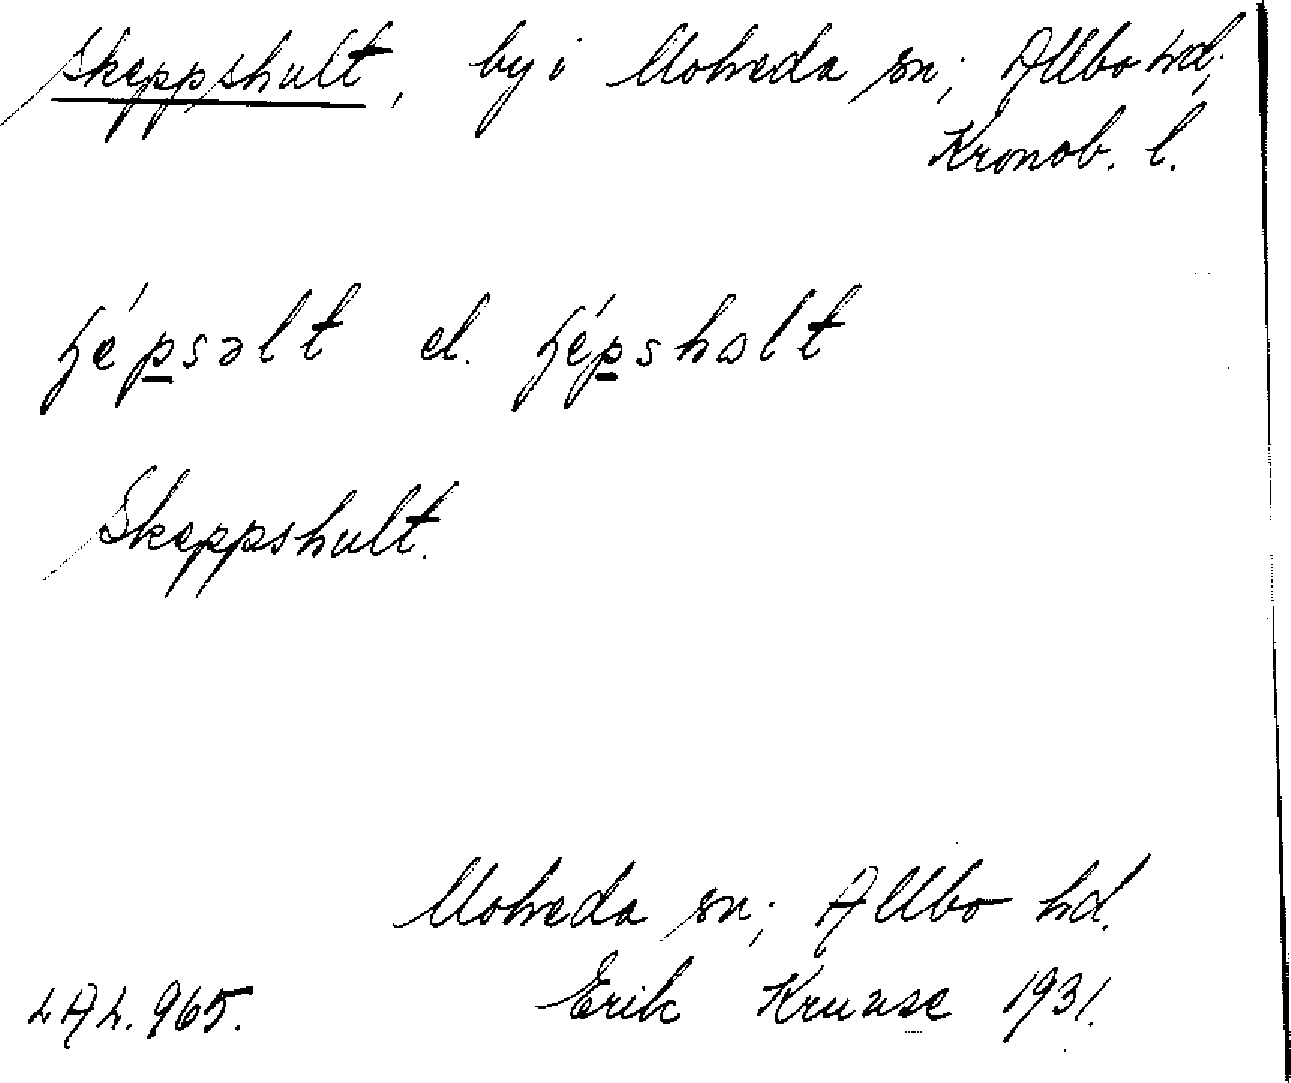 Skeppshult, by i Moheda sn; Allbo hd;
Kronob. l.
ɧépsəlt el. ɧépshɷlt
Skeppshult.
Moheda sn; Allbo hd.
LAL. 965. Erik Kruuse 1931.